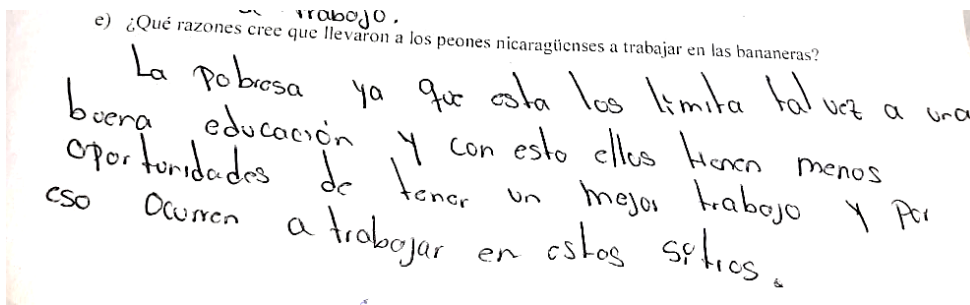 trabajo.
e) ¿Qué razones cree que llevaron a los peones nicaragüenses a trabajar en las bananeras?
La pobresa ya que esta los limita tal vez a una
buena educación y con esto ellos tienen menos
oportunidades de tener un mejor trabajo y por
eso ocurren a trabajar en estos sitios.